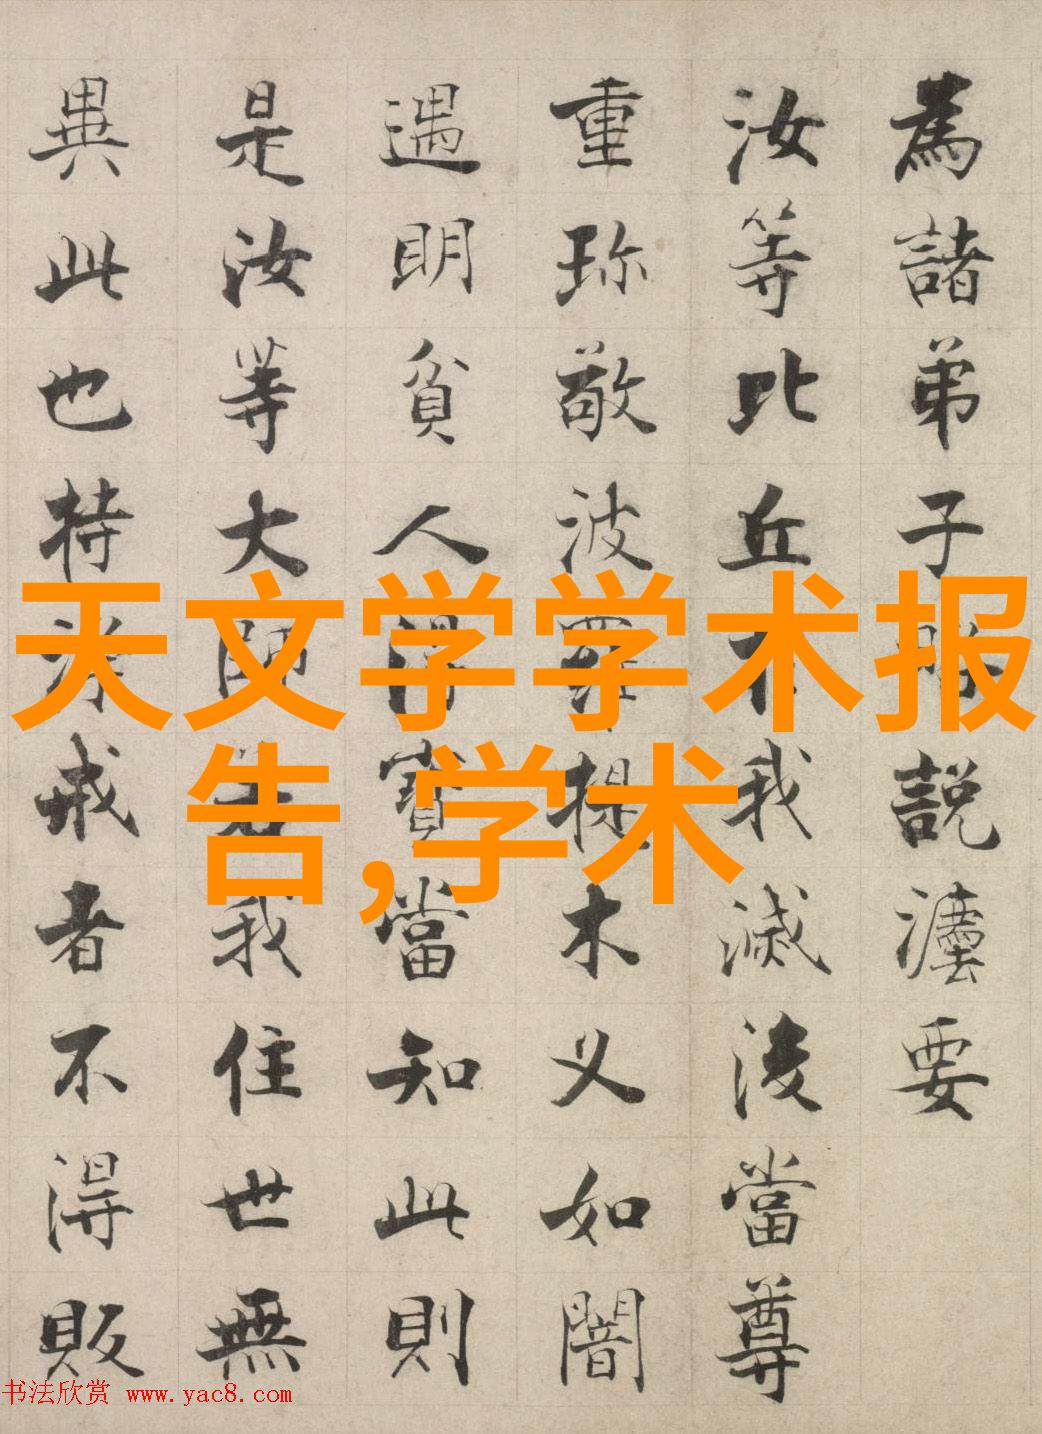 為諸弟子略說灋要
汝等比丘於我滅後當尊
重珎敬波羅提木叉如闇
遇明貧人得寶當知此則
是汝等大師若我住世無
異此也持淨戒者不得販
天文学学术报
告,学术
书法欣赏 www.yac8.com